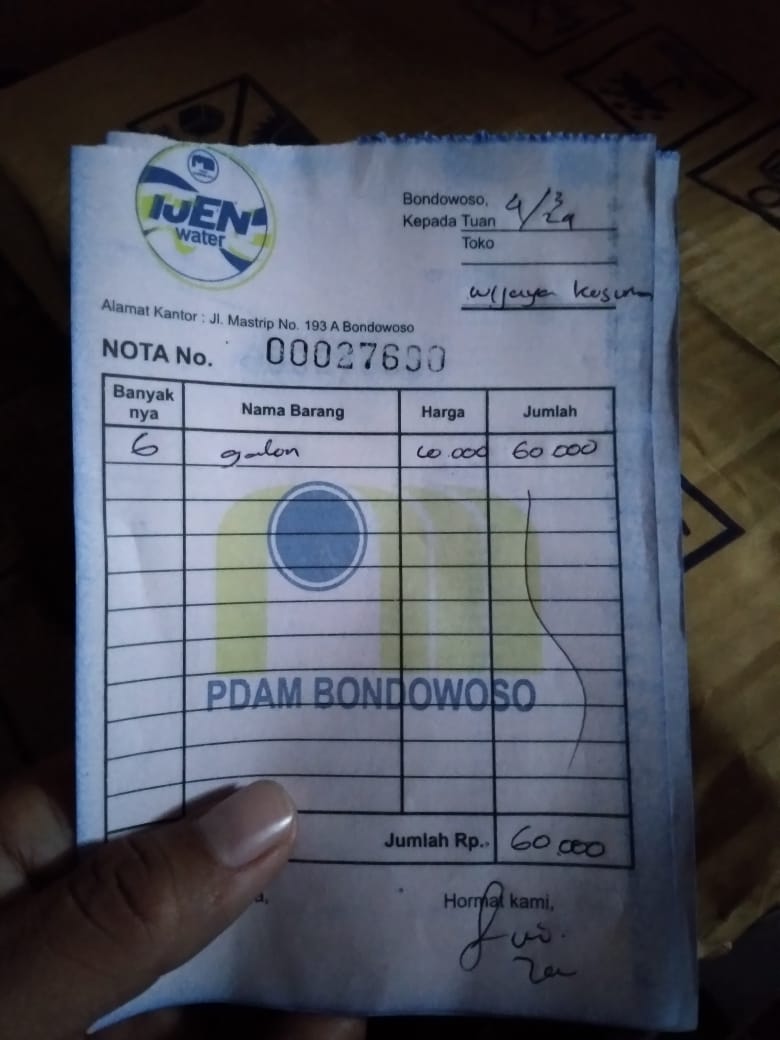 IJEN
water
Bondowoso, 4/3 24
Kepada Tuan
Toko
wijaya kusuma
Alamat Kantor : Jl. Mastrip No. 193 A Bondowoso
NOTA No. 00027690
Banyak nya Nama Barang Harga Jumlah
6 galon 10.000 60.000
PDAM BONDOWOSO
Jumlah Rp. 60.000
Hormat kami,